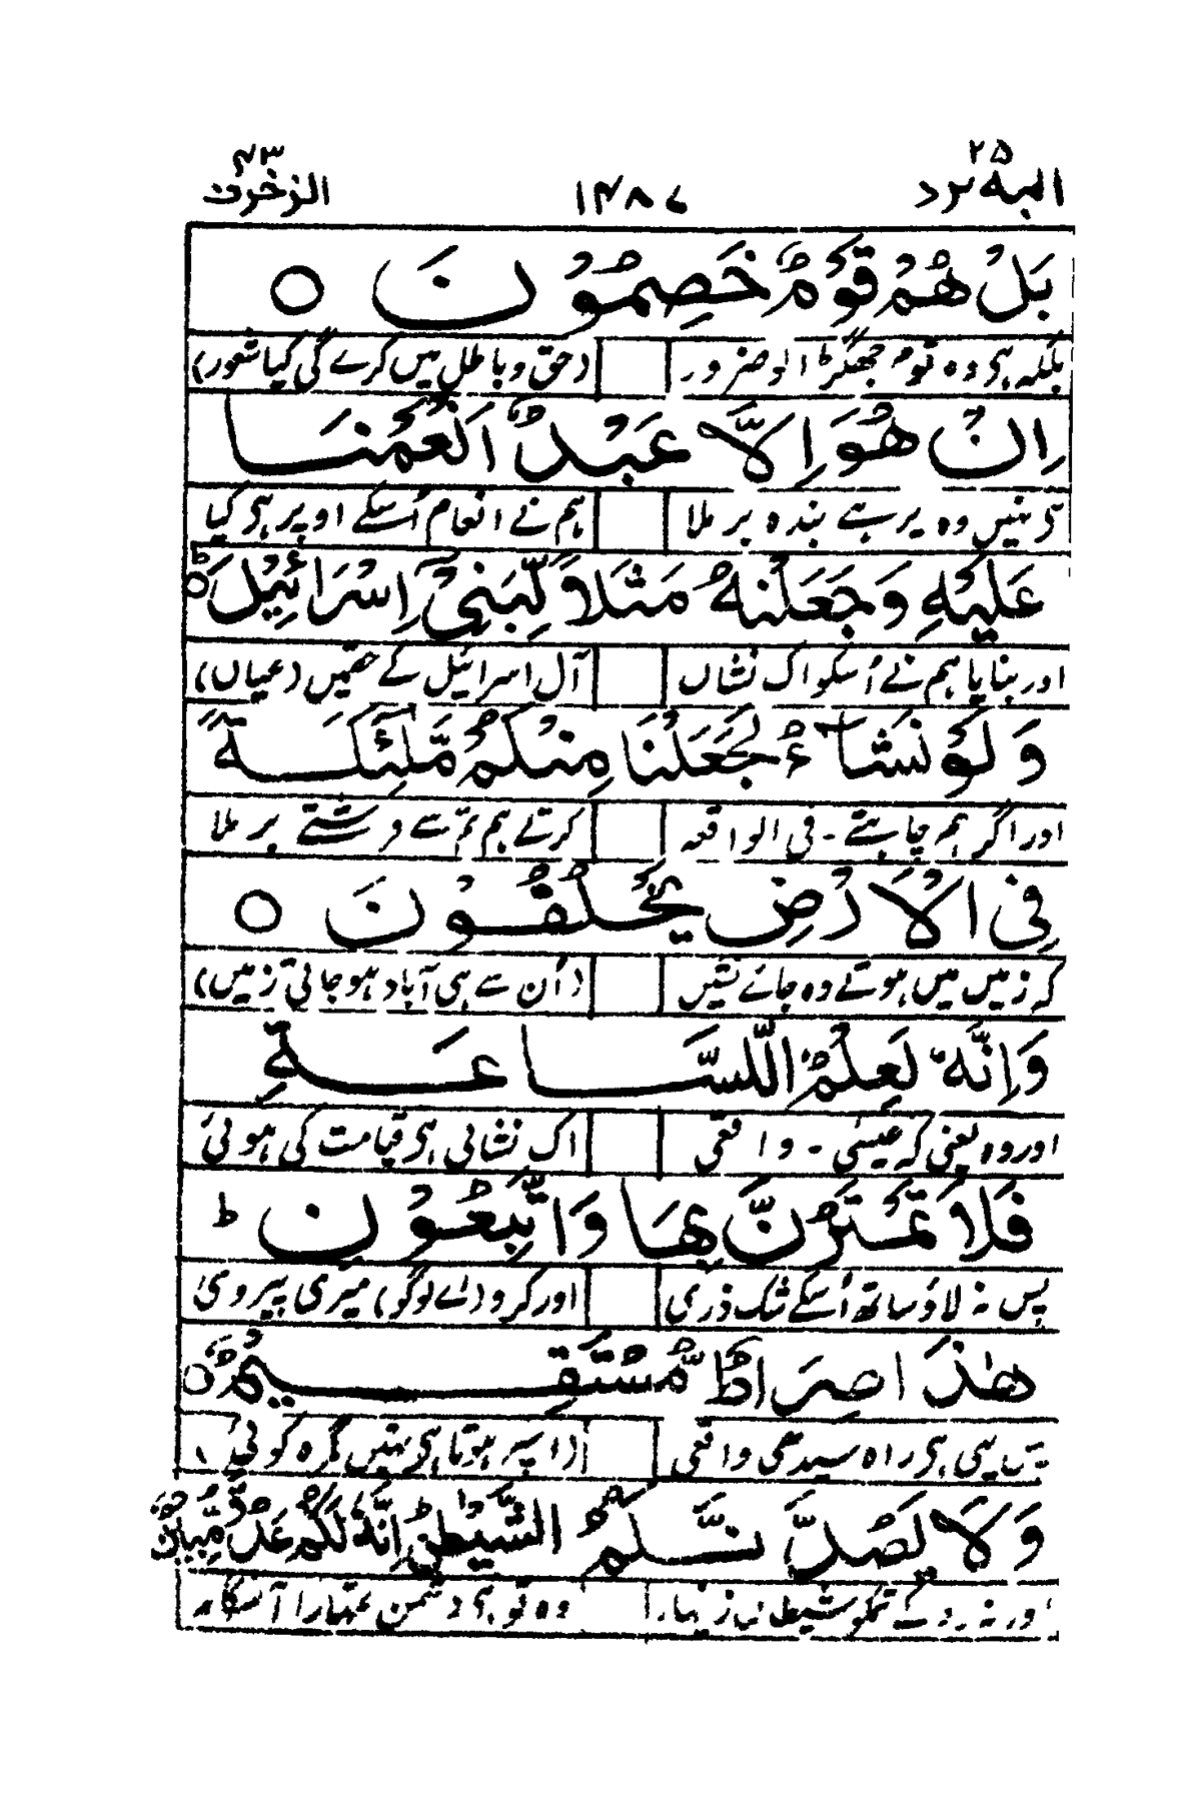 ۲۵ ۴۳
الیہ یرد ۱۴۸۷ الزخرف
بَلْ هُمْ قَوْمٌ خَصِمُوْنَ ○
بلکہ ہی وہ قوم جھگڑالو ضرور (حق و باطل میں کرے گی کیا شعور)
اِنْ هُوَ اِلَّا عَبْدٌ اَنْعَمْنَا
ہی نہیں وہ پر ہے بندہ برملا ہم نے انعام اُسکے اوپر ہی کیا
عَلَيْهِ وَجَعَلْنٰهُ مَثَلًا لِّبَنِيْٓ اِسْرَآئِيْلَ ؕ○
اور بنایا ہم نے اُسکو اک نشاں آل اسرائیل کے حقمیں (عیاں)
وَلَوْ نَشَآءُ لَجَعَلْنَا مِنْكُمْ مَّلٰٓئِكَةً
اور اگر ہم چاہتے ۔ فی الواقعہ کرتے ہم تم سے فرشتے برملا
فِى الْاَرْضِ يَخْلُفُوْنَ ○
کہ زمیں میں ہوتے وہ جائے نشیں (اُن سے ہی آباد ہو جاتی زمیں)
وَاِنَّهٗ لَعِلْمٌ لِّلسَّاعَةِ
اور وہ یعنی کہ عیسٰی ۔ واقعی اک نشانی ہی قیامت کی ہوئی
فَلَا تَمْتَرُنَّ بِهَا وَاتَّبِعُوْنِ ؕ
پس نہ لاؤ ساتھ اُسکے شک ذری اور کرو (اے لوگو) میری پیروی
هٰذَا صِرَاطٌ مُّسْتَقِيْمٌ ○
بس یہی ہی راہ سیدھی واقعی (اسپہ ہوتا ہی نہیں گمرہ کوئی)
وَلَا يَصُدَّنَّكُمُ الشَّيْطٰنُ اِنَّهٗ لَكُمْ عَدُوٌّ مُّبِيْنٌ
اور نہ روکے تمکو شیطاں زینہار وہ تو ہی دشمن تمہارا آشکار